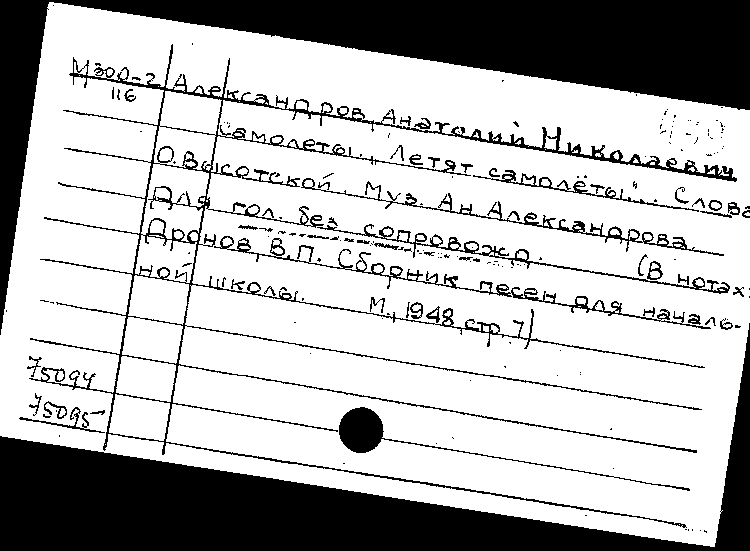 М300-2 Александров, Анатолий Николаевич
116
Самолеты. „Летят самолёты"... Слова
О. Высотской. Муз. Ан Александрова.
Для гол. без сопровожд. (В нотах:
Дронов, В.П. Сборник песен для началь-
ной школы. М., 1948, стр. 7)
75094
75095